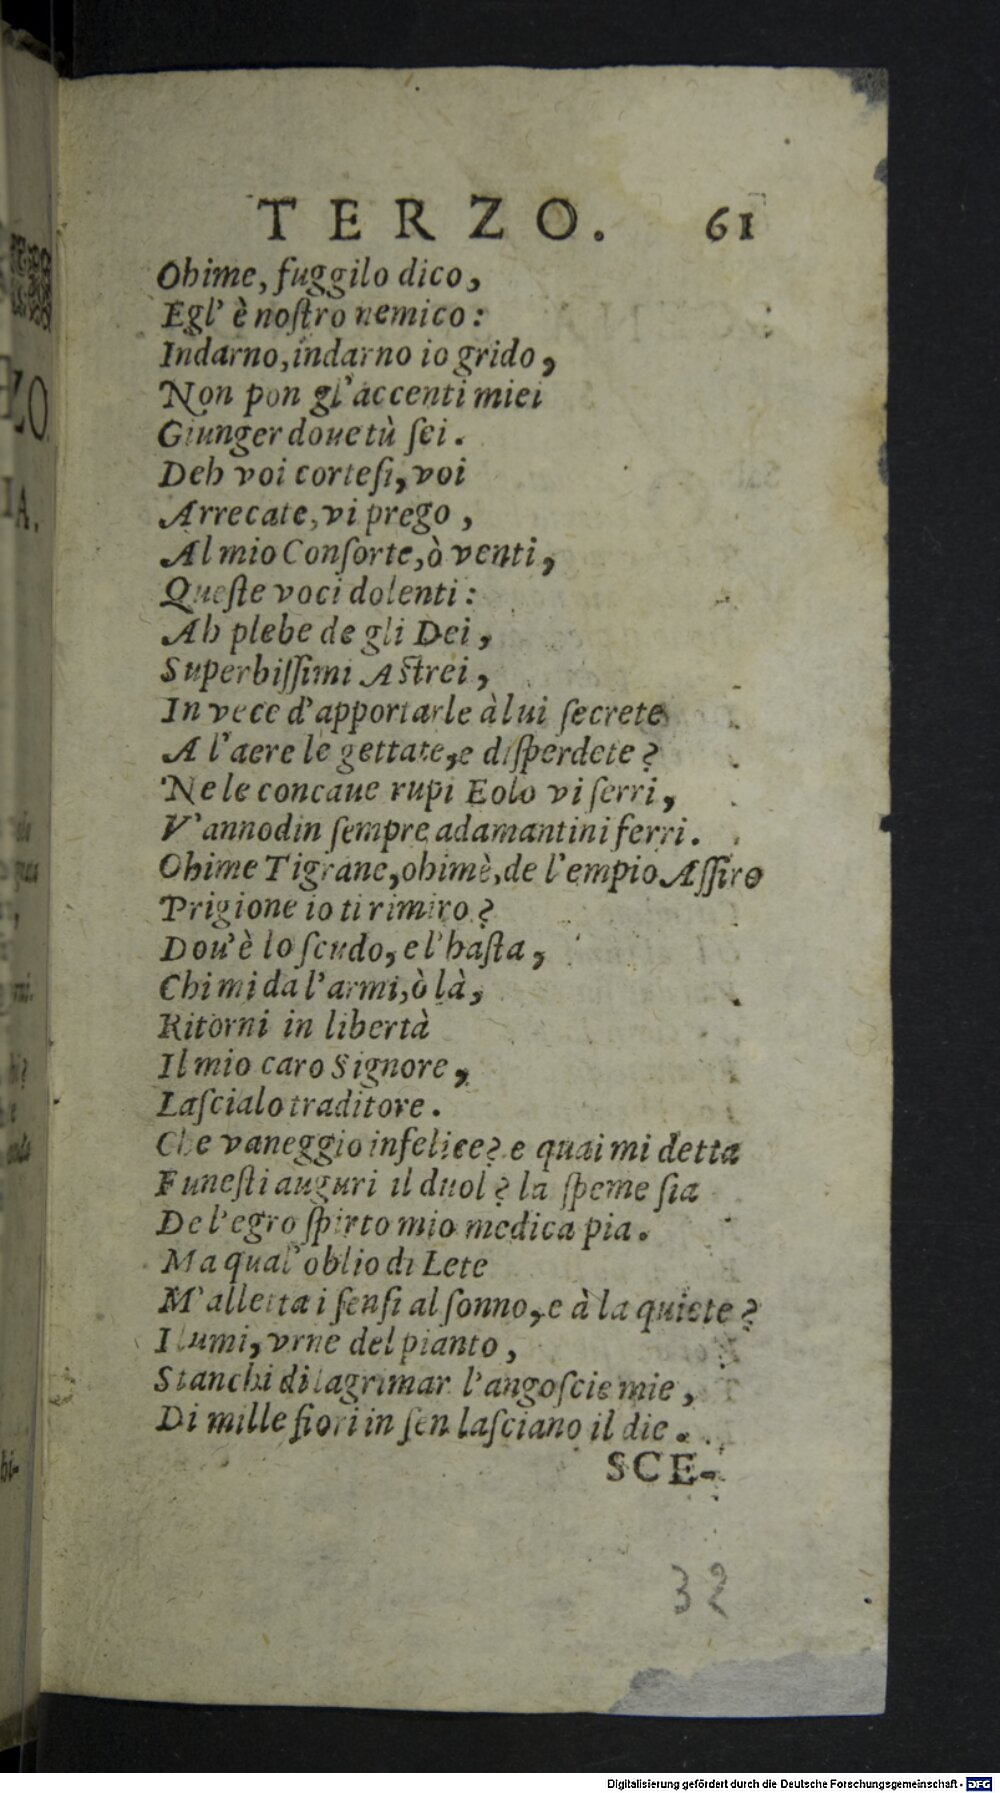 TERZO. 61
Ohime, fuggilo dico,
Egl' è nostro nemico:
Indarno, indarno io grido,
Non pon gl' accenti miei
Giunger doue tù sei.
Deh voi cortesi, voi
Arrecate, vi prego,
Al mio Consorte, ò venti,
Queste voci dolenti:
Ah plebe de gli Dei,
Superbissimi Astrei,
In vece d'apportarle à lui secrete
A l'aere le gettate, e disperdete?
Ne le concaue rupi Eolo vi serri,
V'annodin sempre adamantini ferri.
Ohime Tigrane, ohimè, de l'empio Assiro
Prigione io ti rimiro?
Dou'è lo scudo, e l'hasta,
Chi mi da l'armi, ò là,
Ritorni in libertà
Il mio caro Signore,
Lascialo traditore.
Che vaneggio infelice? e quai mi detta
Funesti auguri il duol? la speme sia
De l'egro spirto mio medica pia.
Ma qual' oblio di Lete
M'alletta i sensi al sonno, e à la quiete?
I lumi, vrne del pianto,
Stanchi di lagrimar l'angoscie mie,
Di mille fiori in sen lasciano il die.
SCE-
32
ZO
IA.
hi-
Digitalisierung gefördert durch die Deutsche Forschungsgemeinschaft - DFG